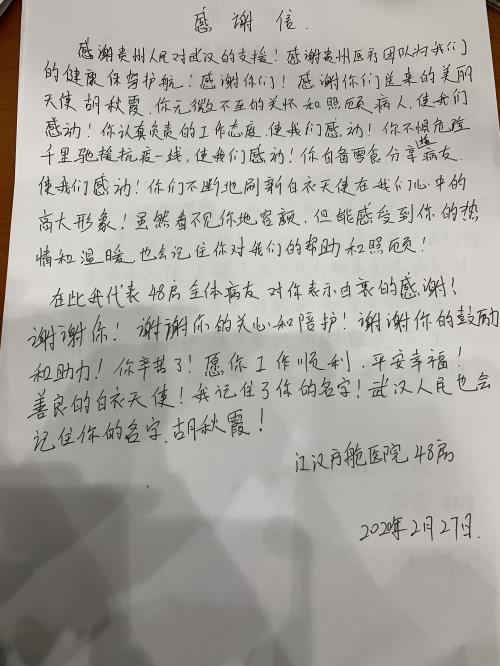 感谢信.
感谢贵州人民对武汉的支援！感谢贵州医疗团队为我们
的健康保驾护航！感谢你们！感谢你们送来的美丽
天使胡秋霞.你无微不至的关怀和照顾病人,使我们
感动！你认真负责的工作态度使我们感动！你不惧危险
千里驰援抗疫一线,使我们感动！你自备零食分享给病友
使我们感动！你们不断地刷新白衣天使在我们心中的
高大形象！虽然看不见你地容颜,但能感受到你的热
情和温暖也会记住你对我们的帮助和照顾！
在此我代表48房全体病友对你表示白衷的感谢！
谢谢你！谢谢你的关心和陪护！谢谢你的鼓励
和助力！你辛苦了！愿你工作顺利、平安幸福！
善良的白衣天使！我记住了你的名字！武汉人民也会
记住你的名字、胡秋霞！
江汉方舱医院48房
2020年2月27日.